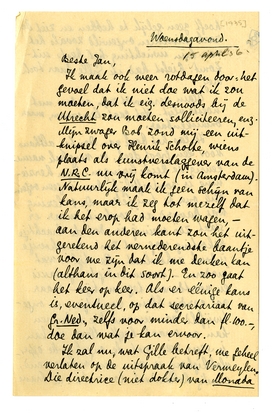 Woensdagavond.
15 april '36.
Beste Jan,
Ik maak ook weer rotdagen door: het
gevoel dat ik niet doe wat ik zou
moeten, dat ik eig. desnoods bij de
Utrecht zou moeten solliciteeren, enz.
Mijn zwager Bot zond mij een uit-
knipsel over Henrik Scholte, wiens
plaats als kunstverslaggever van de
N.R.C. nu vrij komt (in Amsterdam).
Natuurlijk maak ik geen schijn van
kans, maar ik zeg tot mezelf dat
ik het erop had moeten wagen, —
aan den anderen kant zou het uit-
gerekend het vernederendste baantje
voor me zijn dat ik me denken kan
(althans in dit soort). En zoo gaat
het keer op keer. Als er éénige kans
is, eventueel, op dat secretariaat van
Gr. Ned., zelfs voor minder dan fl. 100.—,
doe dan wat je kan ervoor.
Ik zal nu, wat Gille betreft, me geheel
verlaten op de uitspraak van Vermeylen.
Die directrice (niet dokter) van Monada